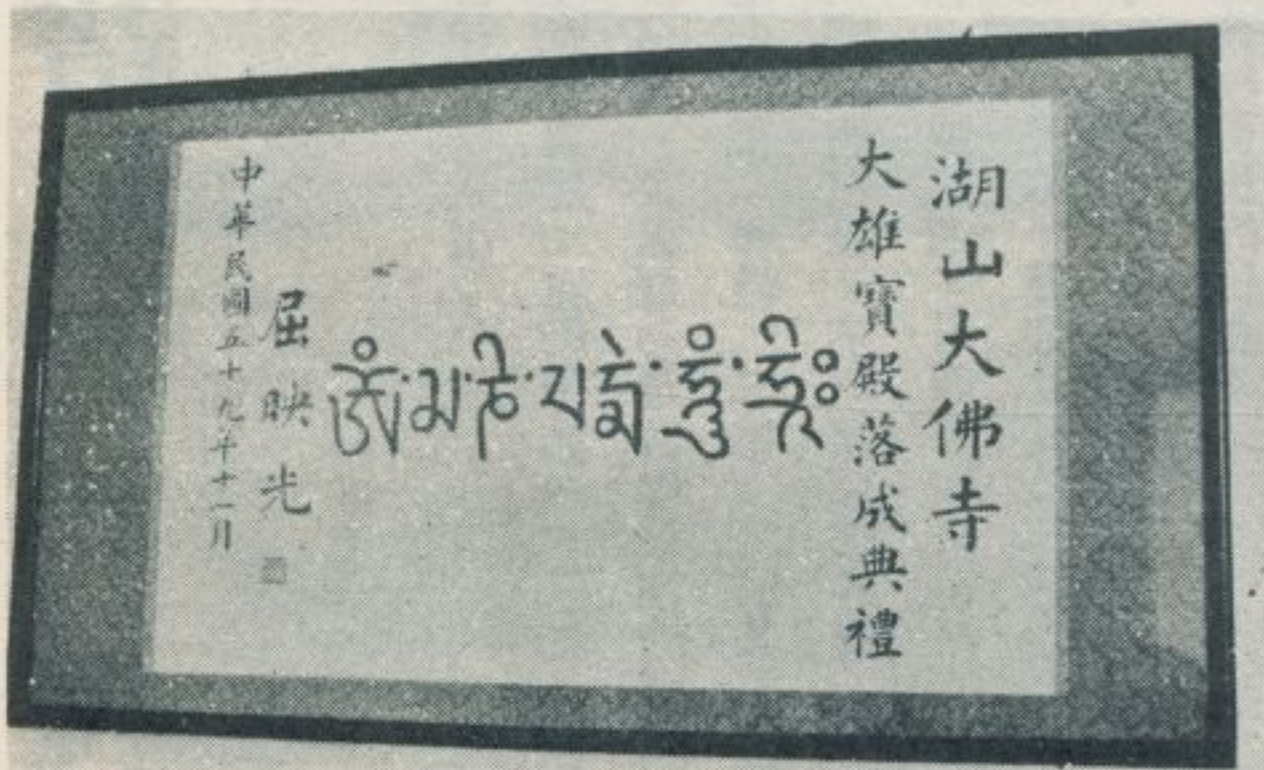 湖山大佛寺
大雄寶殿落成典禮
ༀ་མ་ཎི་པདྨེ་ཧཱུྃ་ཧྲཱིཿ
屈映光
中華民國五十九年十一月